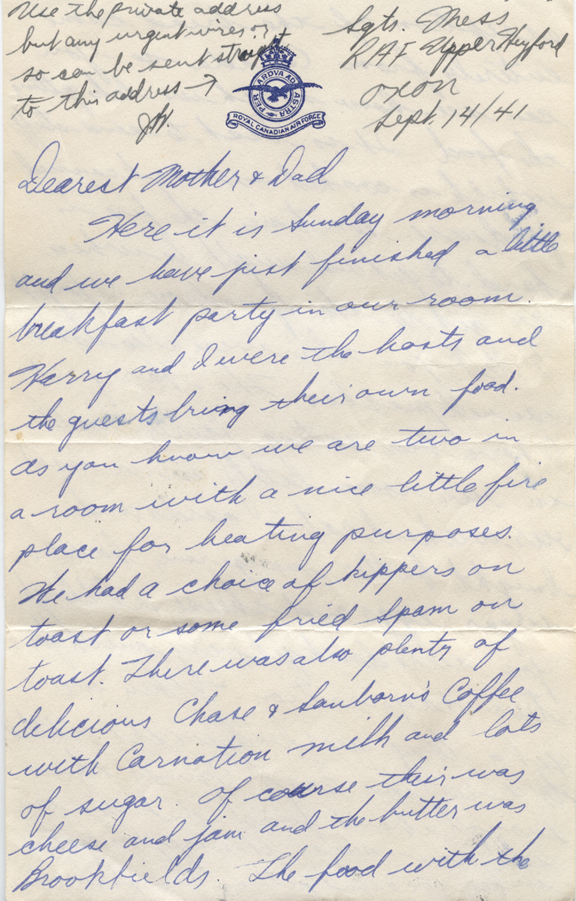 Use the private address
but any urgent wires
so can be sent straight
to this address →
JW.
Sgts. Mess
RAF Upper Heyford
Oxon
Sept 14/41
PER ARDVA AD ASTRA
ROYAL CANADIAN AIR FORCE
Dearest Mother & Dad
Here it is Sunday morning
and we have just finished a little
breakfast party in our room.
Harry and I were the hosts and
the guests bring their own food.
As you know we are two in
a room with a nice little fire
place for heating purposes.
We had a choice of kippers on
toast or some fried Spam on
toast. There was also plenty of
delicious Chase & Sanborn's Coffee
with Carnation milk and lots
of sugar. Of course their was
cheese and jam and the butter was
Brookfields. The food with the